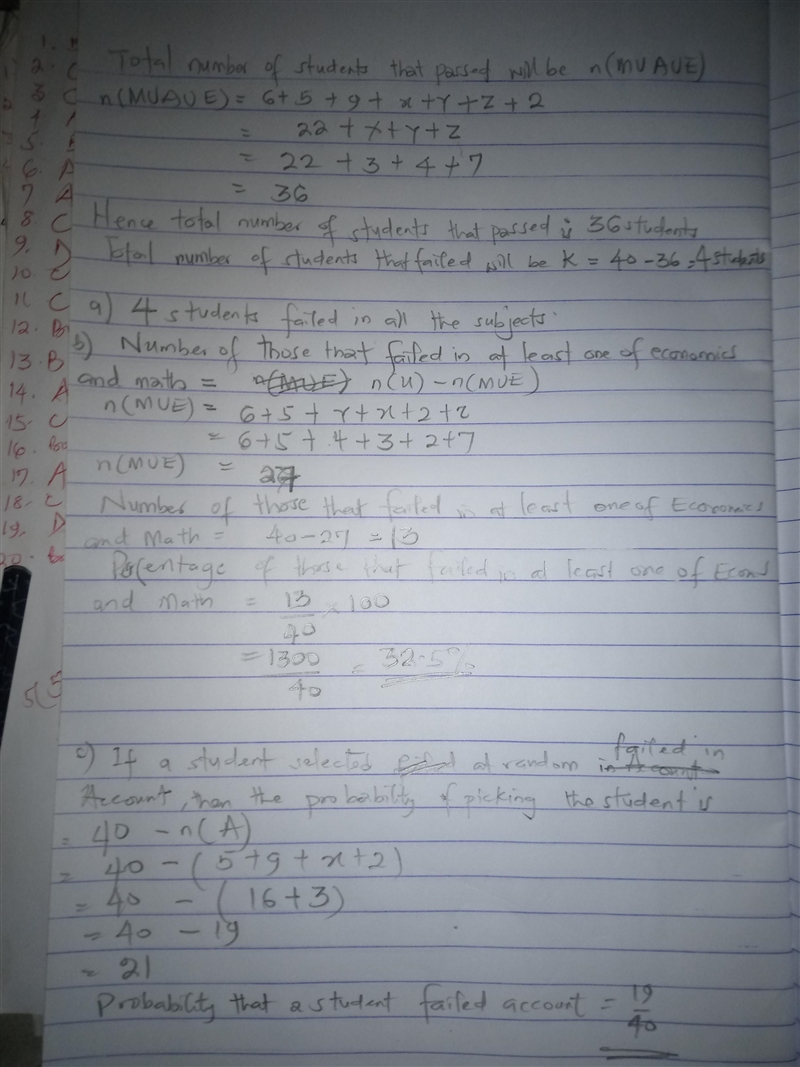 1.
2. C
3 C
5.
6. A
7 A
8. C
9. D
10. C
11. C
12. B
13. B
14. A
15. C
16.
17. A
18. C
19. D
Total number of students that passed will be n(MUAUE)
n(MUAUE) = 6+5+9+x+Y+Z+2
= 22+x+Y+Z
= 22+3+4+7
= 36
Hence total number of students that passed is 36 students
Total number of students that failed will be K = 40-36=4 students
a) 4 students failed in all the subjects.
b) Number of those that failed in at least one of economics
and math = n(MUE) n(U) - n(MUE)
n(MUE) = 6+5+Y+x+2+z
= 6+5+4+3+2+7
n(MUE) = 27
Number of those that failed in at least one of Economics
and Math = 40-27 = 13
Percentage of those that failed in at least one of Econs
and Math = 13/40 × 100
= 1300/40 = 32.5%
c) If a student selected at random in Account failed in
Account, then the probability of picking the student is
= 40 - n(A)
= 40 - (5+9+x+2)
= 40 - (16+3)
= 40 - 19
= 21
Probability that a student failed account = 19/40